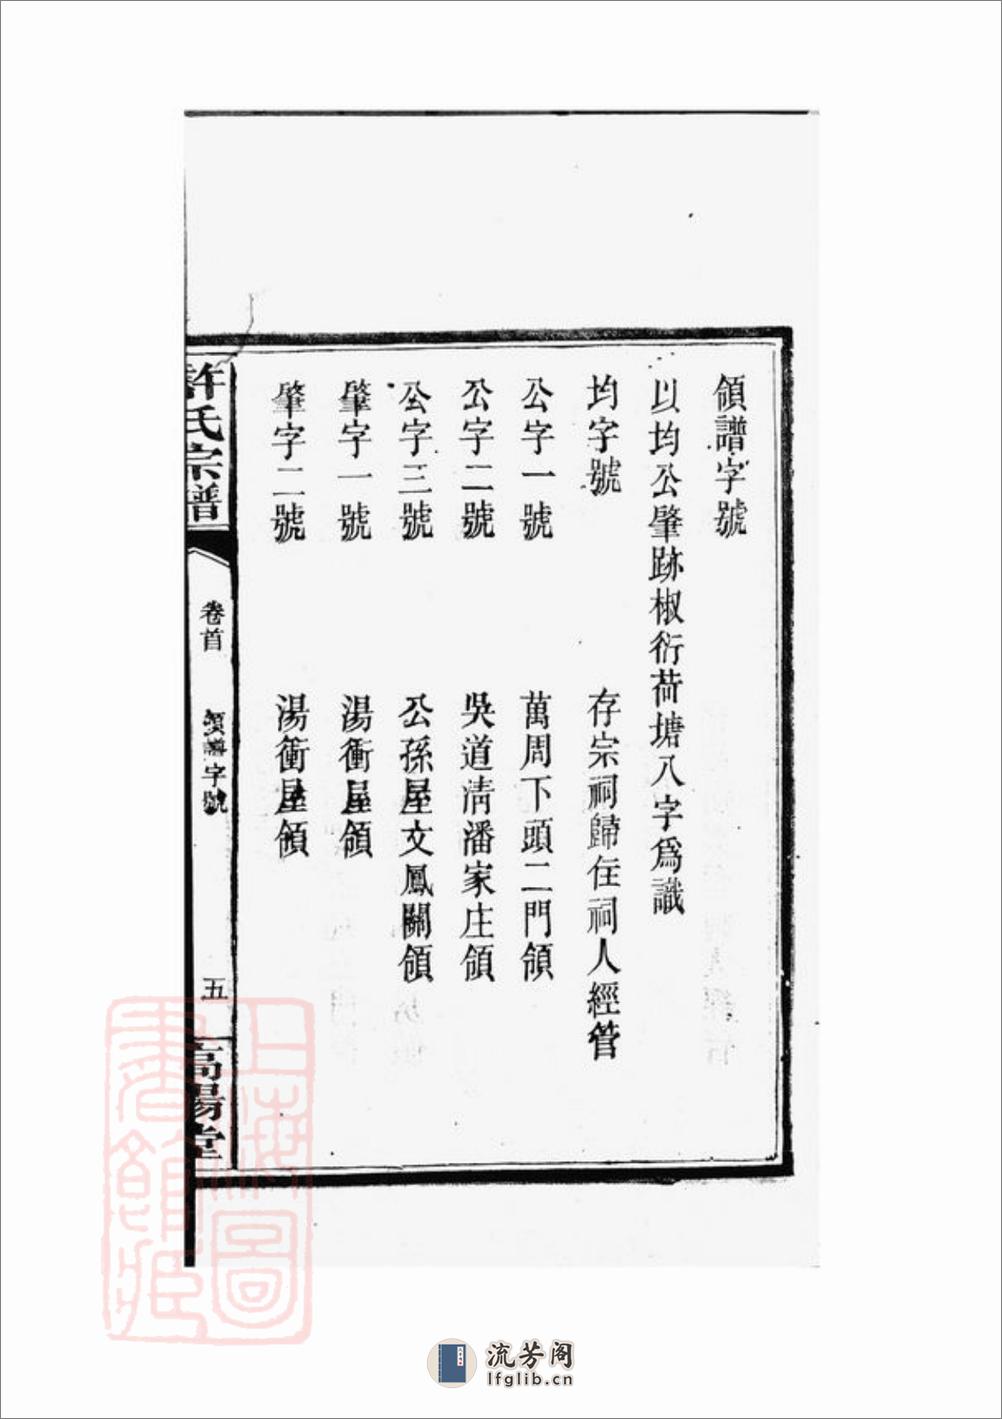 領譜字號
以均公肇跡椒衍荷塘八字爲識
均字號 存宗祠歸住祠人經管
公字一號 萬周下頭二門領
公字二號 吳道清潘家庄領
公字三號 公孫屋文鳳關領
肇字一號 湯衝屋領
肇字二號 湯衝屋領
許氏宗譜
卷首
領譜字號
五
高陽堂
上海圖書館藏
流芳阁
lfglib.cn